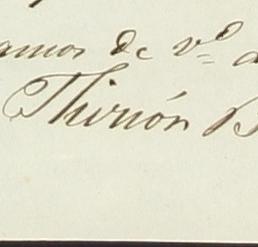 amos de v.d
Thirión B